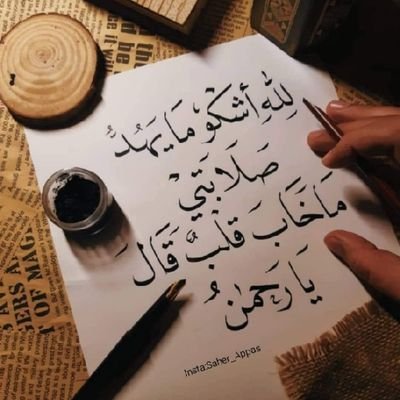 لِلّٰهِ أَشْكُوْ مَا يَهُدُّ
صَلَابَتِيْ
مَا خَابَ قَلْبٌ قَالَ
يَا رَحْمٰنُ
Insta:Saher_Appas